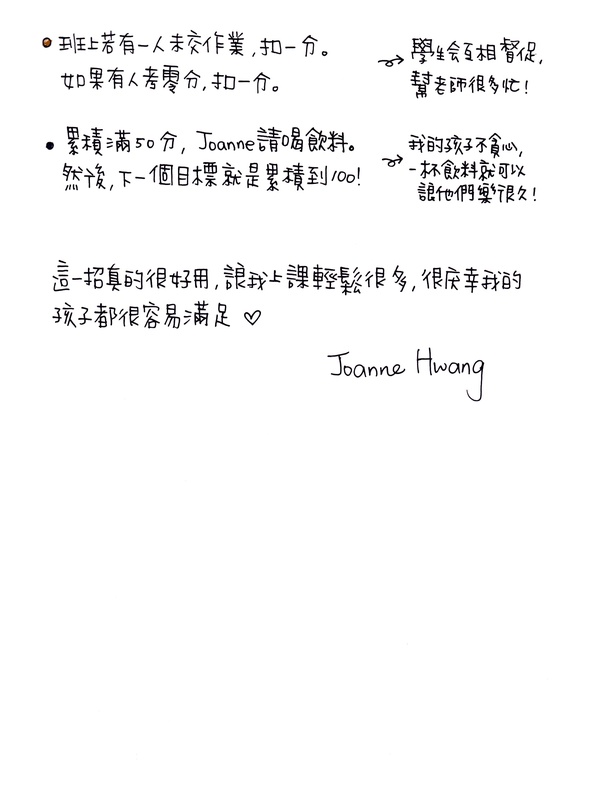 班上若有一人未交作業,扣一分。
如果有人考零分,扣一分。
學生会互相督促,
幫老師很多忙!
累積滿50分, Joanne請喝飲料。
然後,下一個目標就是累積到100!
我的孩子不貪心,
一杯飲料就可以
讓他們樂很久!
這一招真的很好用,讓我上課輕鬆很多,很庆幸我的
孩子都很容易滿足♡
Joanne Hwang